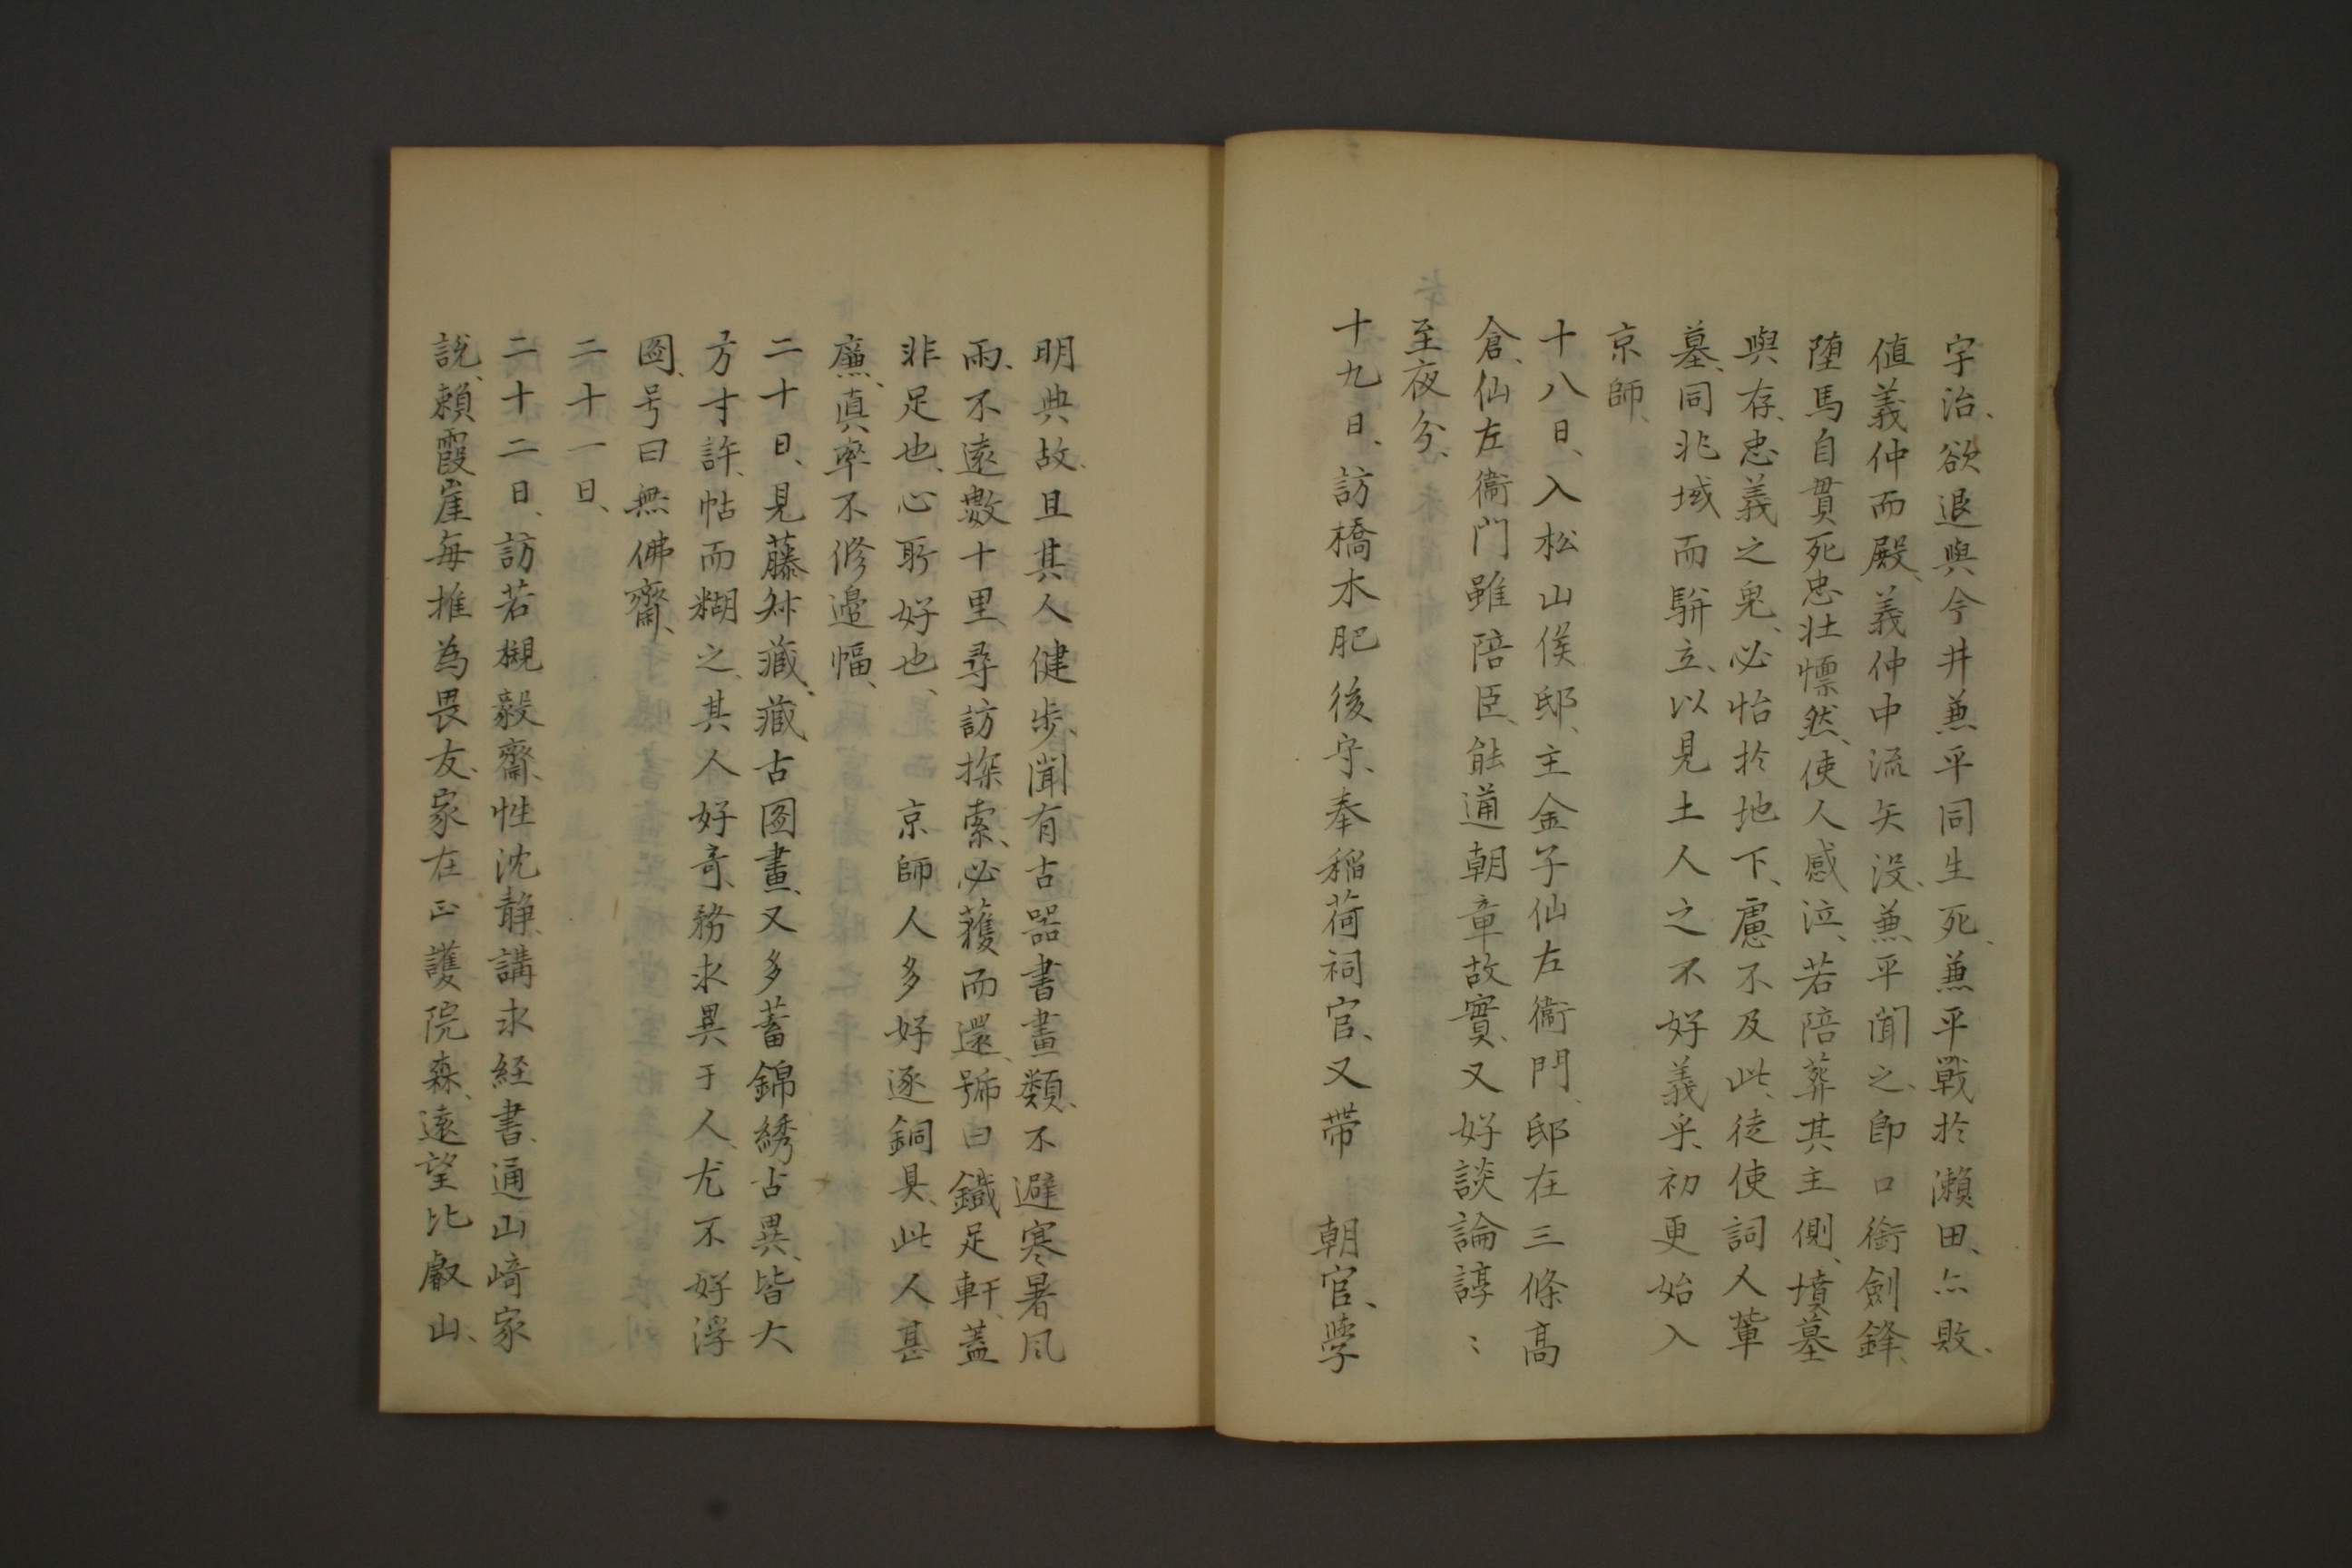 宇治、欲退與今井兼平同生死、兼平戰於瀨田、亦敗、
值義仲而殿、義仲中流矢没、兼平聞之、即口銜劍鋒、
墮馬自貫死、忠壮慓然、使人感泣、若陪葬其主側、墳墓
與存、忠義之鬼、必怡於地下、慮不及此、徒使詞人輩
墓、同兆域而駢立、以見土人之不好義乎、初更始入
京師、
十八日、入松山侯邸、主金子仙左衞門、邸在三條高
倉、仙左衞門雖陪臣、能通朝章故實、又好談論諄〻
至夜分、
十九日、訪橋本肥後守、奉稲荷祠官、又帯 朝官、学
明典故、且其人健歩、聞有古器書畫類、不避寒暑風
雨、不遠數十里、尋訪探索、必獲而還、號曰鐵足軒、蓋
非足也、心所好也、 京師人多好逐銅臭、此人甚
廉、真率不修邉幅、
二十日、見藤叔蔵、藏古図畫、又多蓄錦綉古異、皆大
方寸許、帖而糊之、其人好奇、務求異于人、尤不好浮
図、号曰無佛齋、
二十一日、
二十二日、訪若槻毅齋、性沈靜、講求経書、通山﨑家
説、頼霞崖每推為畏友、家在正護院森、遠望比叡山、